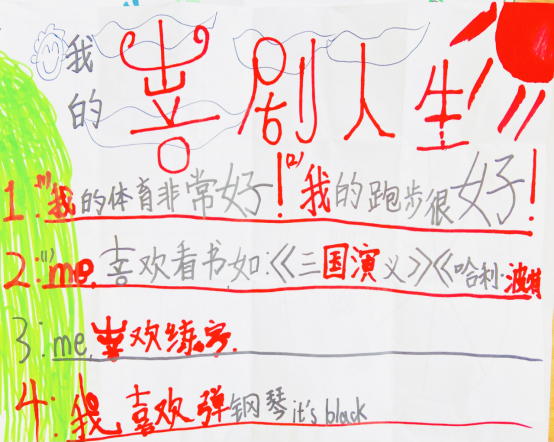 我的喜剧人生
1.(1)我的体育非常好!(2)我的跑步很好!
2:(1)me.喜欢看书如:《三国演义》《哈利·波特
3:me.喜欢练字.
4:我喜欢弹钢琴it's black